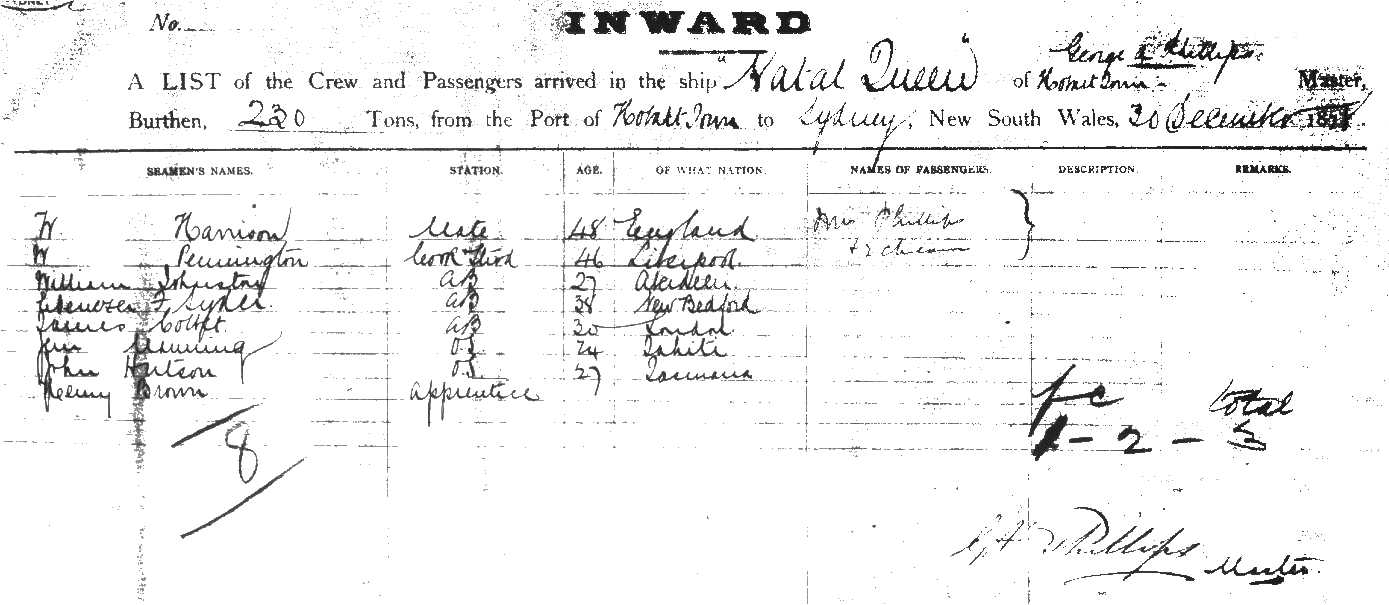 SYDNEY
No.
INWARD
George A Phillips
A LIST of the Crew and Passengers arrived in the ship "Natal Queen" of Hobart Town Master,
Burthen, 230 Tons, from the Port of Hobart Town to Sydney, New South Wales, 30 December 187
SEAMEN'S NAMES. STATION. AGE. OF WHAT NATION. NAMES OF PASSENGERS. DESCRIPTION. REMARKS.
W Harrison Mate 48 England Mrs Phillips
W Pennington Cook & Stwd 46 Liverpool + 2 children
William Johnston AB 27 Aberdeen
Ebenezer F AB 38 New Bedford
James AB 30 London
Jim OS 24 Tahiti
John Hutson OS 27 Tasmania
Henry Brown Apprentice
fc total
1 - 2 - 3
8
G A Phillips
Master